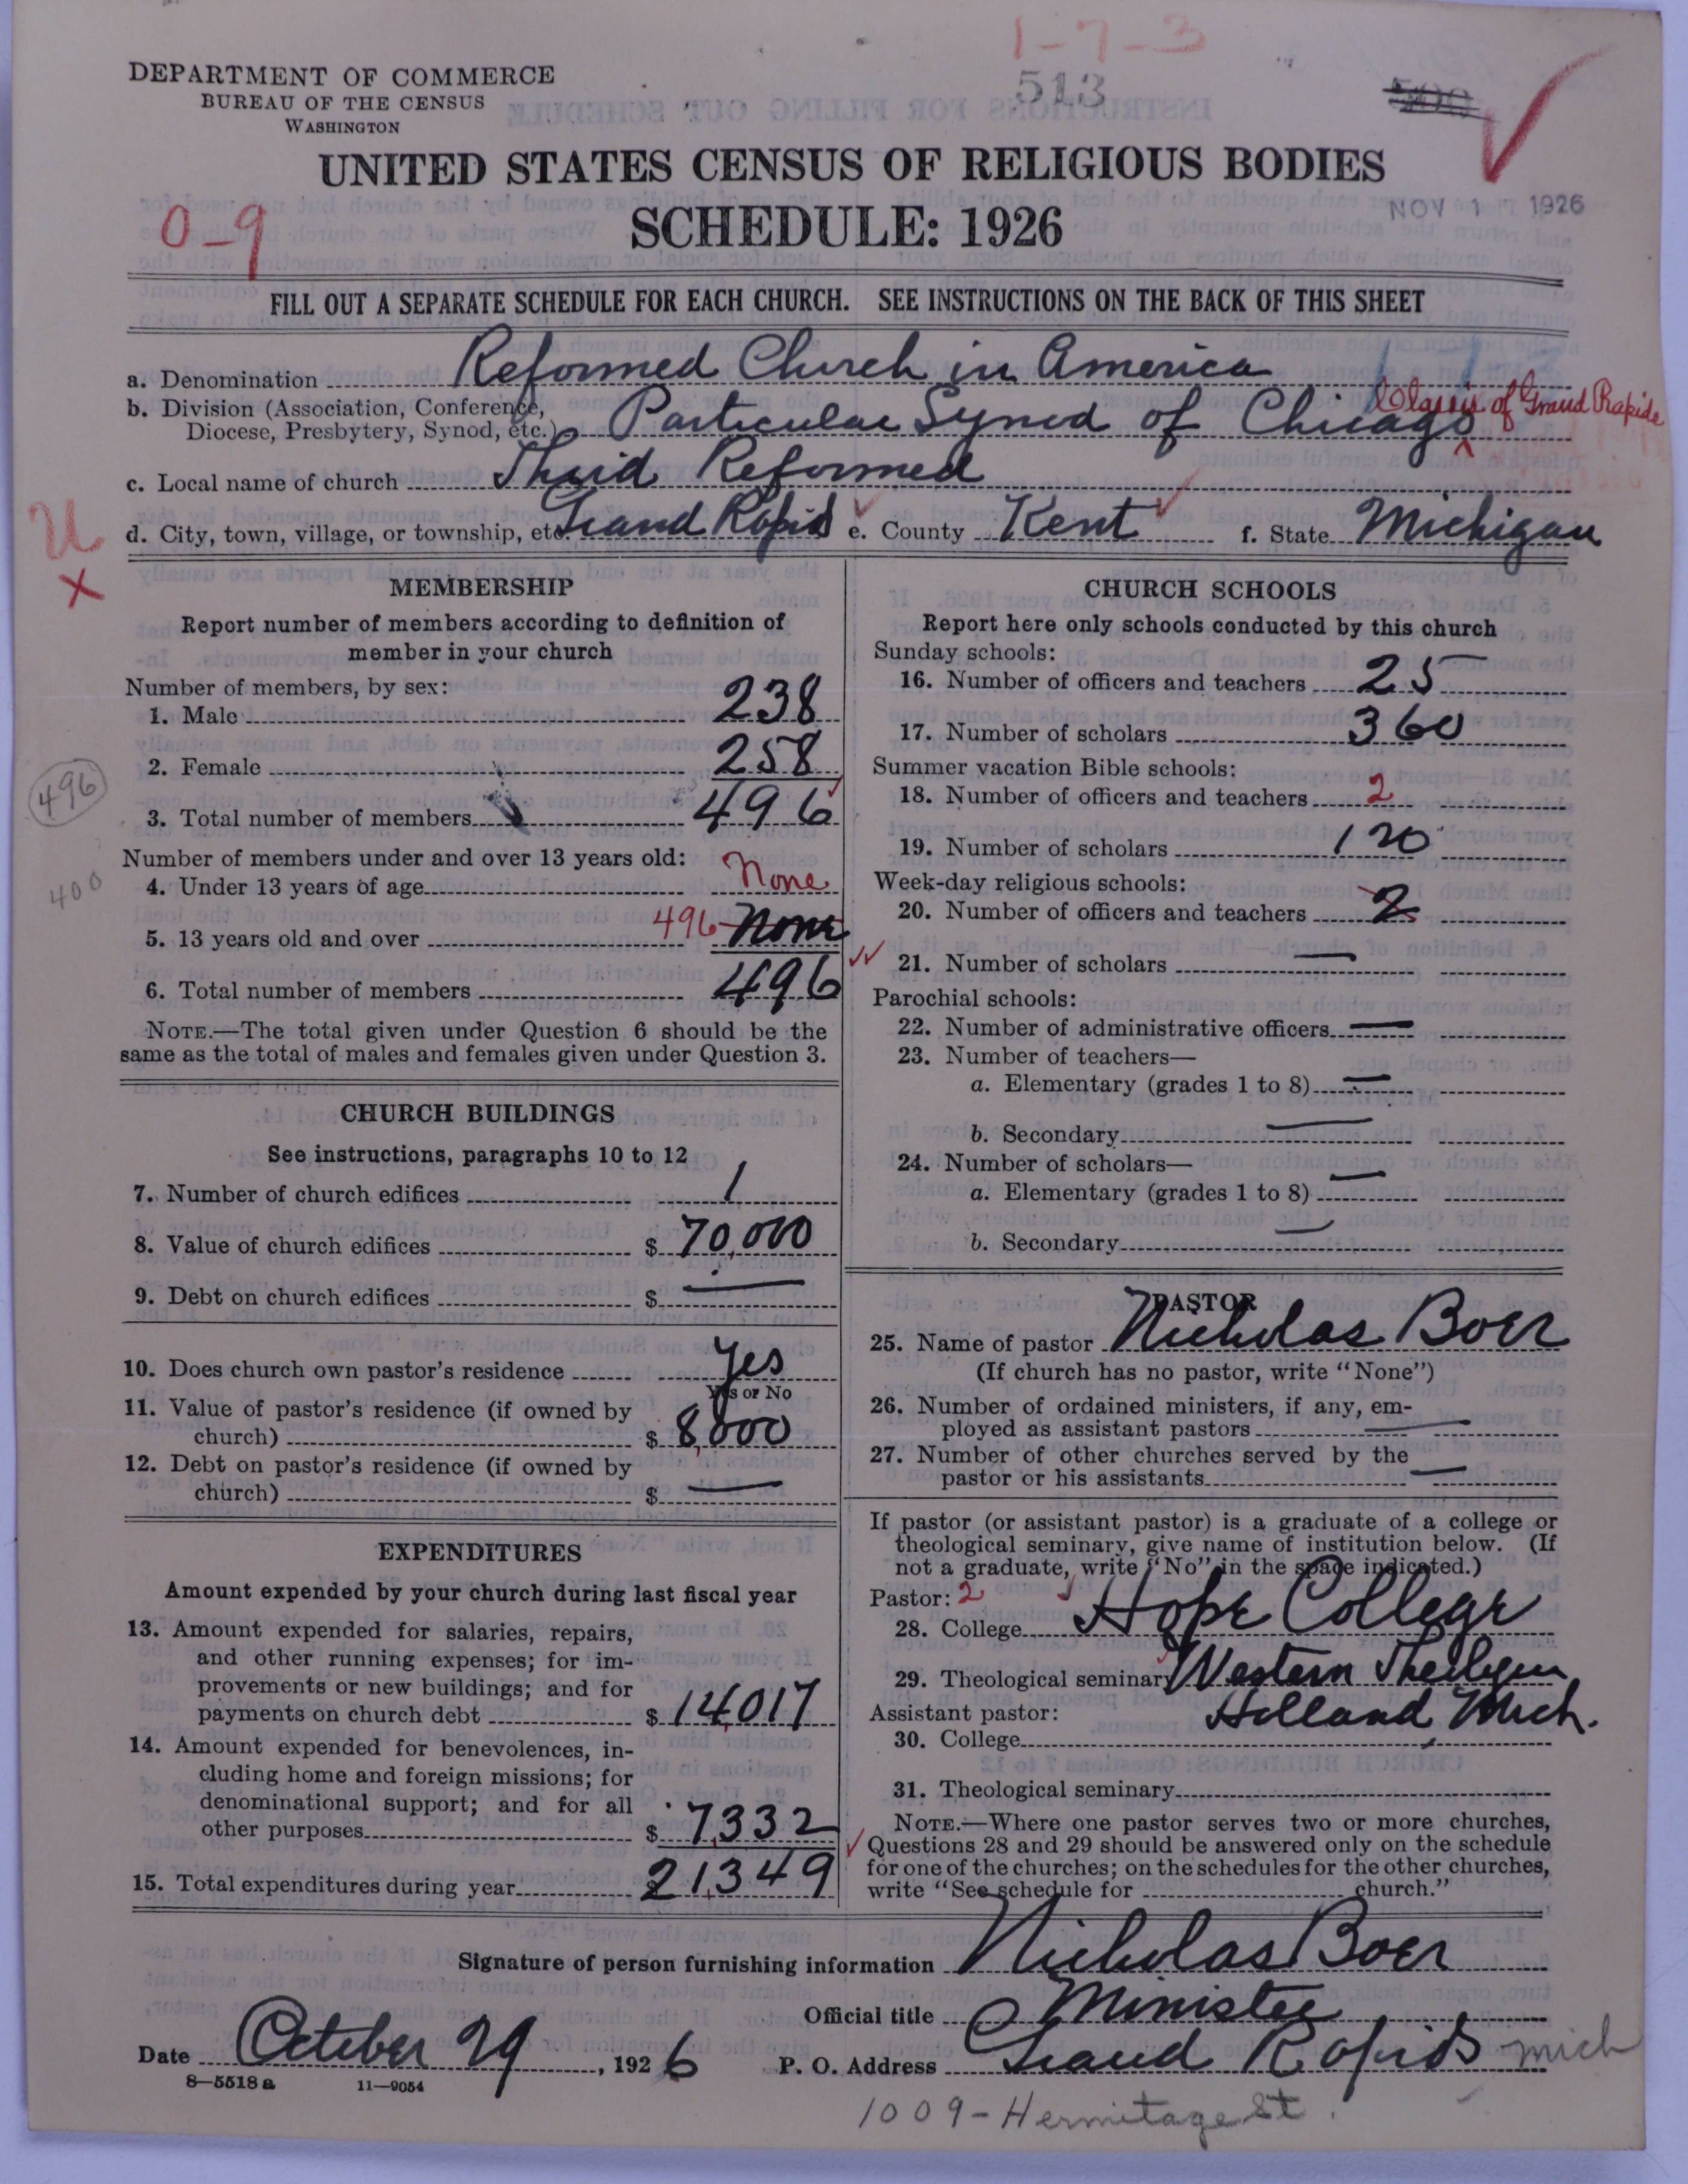 1-7-3
DEPARTMENT OF COMMERCE
BUREAU OF THE CENSUS
WASHINGTON
513
500
UNITED STATES CENSUS OF RELIGIOUS BODIES
SCHEDULE: 1926
NOV 1 1926
0-9
FILL OUT A SEPARATE SCHEDULE FOR EACH CHURCH. SEE INSTRUCTIONS ON THE BACK OF THIS SHEET
a. Denomination Reformed Church in America
b. Division (Association, Conference, Diocese, Presbytery, Synod, etc.) Particular Synod of Chicago Classis of Grand Rapids
c. Local name of church Third Reformed
d. City, town, village, or township, etc. Grand Rapids e. County Kent f. State Michigan
U
X
MEMBERSHIP
Report number of members according to definition of
member in your church
Number of members, by sex:
1. Male 238
2. Female 258
496
3. Total number of members 496
Number of members under and over 13 years old:
400
4. Under 13 years of age None
5. 13 years old and over 496 None
6. Total number of members 496
NOTE.—The total given under Question 6 should be the
same as the total of males and females given under Question 3.
CHURCH BUILDINGS
See instructions, paragraphs 10 to 12
7. Number of church edifices 1
8. Value of church edifices $ 70,000
9. Debt on church edifices $ —
10. Does church own pastor's residence Yes
Yes or No
11. Value of pastor's residence (if owned by
church) $ 8,000
12. Debt on pastor's residence (if owned by
church) $ —
EXPENDITURES
Amount expended by your church during last fiscal year
13. Amount expended for salaries, repairs,
and other running expenses; for im-
provements or new buildings; and for
payments on church debt $ 14,017
14. Amount expended for benevolences, in-
cluding home and foreign missions; for
denominational support; and for all
other purposes $ 7,332
15. Total expenditures during year 21,349
CHURCH SCHOOLS
Report here only schools conducted by this church
Sunday schools:
16. Number of officers and teachers 25
17. Number of scholars 360
Summer vacation Bible schools:
18. Number of officers and teachers 2
19. Number of scholars 120
Week-day religious schools:
20. Number of officers and teachers 2
21. Number of scholars —
Parochial schools:
22. Number of administrative officers —
23. Number of teachers—
a. Elementary (grades 1 to 8) —
b. Secondary —
24. Number of scholars—
a. Elementary (grades 1 to 8) —
b. Secondary —
PASTOR
25. Name of pastor Nicholas Boer
(If church has no pastor, write "None")
26. Number of ordained ministers, if any, em-
ployed as assistant pastors —
27. Number of other churches served by the
pastor or his assistants —
If pastor (or assistant pastor) is a graduate of a college or
theological seminary, give name of institution below. (If
not a graduate, write "No" in the space indicated.)
Pastor: 2
28. College Hope College
29. Theological seminary Western
Assistant pastor: Holland Mich.
30. College
31. Theological seminary
NOTE.—Where one pastor serves two or more churches,
Questions 28 and 29 should be answered only on the schedule
for one of the churches; on the schedules for the other churches,
write "See schedule for church."
Signature of person furnishing information Nicholas Boer
Official title Minister
Date October 29, 1926 P. O. Address Grand Rapids Mich
8—5518a 11—9054
1009-Hermitage St.